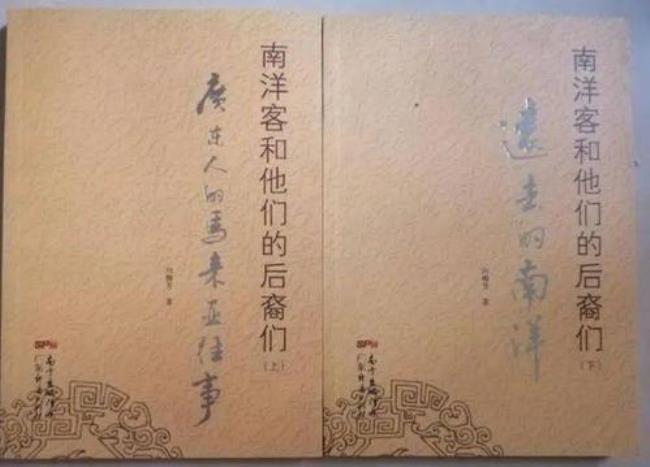 南洋客和他们的后裔们
（上）
廣东人的馬来亚往事
著
南方出版传媒
南洋客和他们的后裔们
（下）
遠去的南洋
著
南方出版传媒